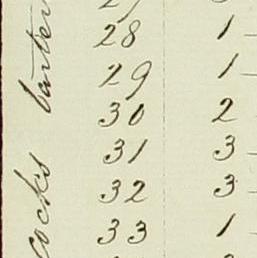 28 1
29 1
30 2
31 3
32 3
33 1
cocks